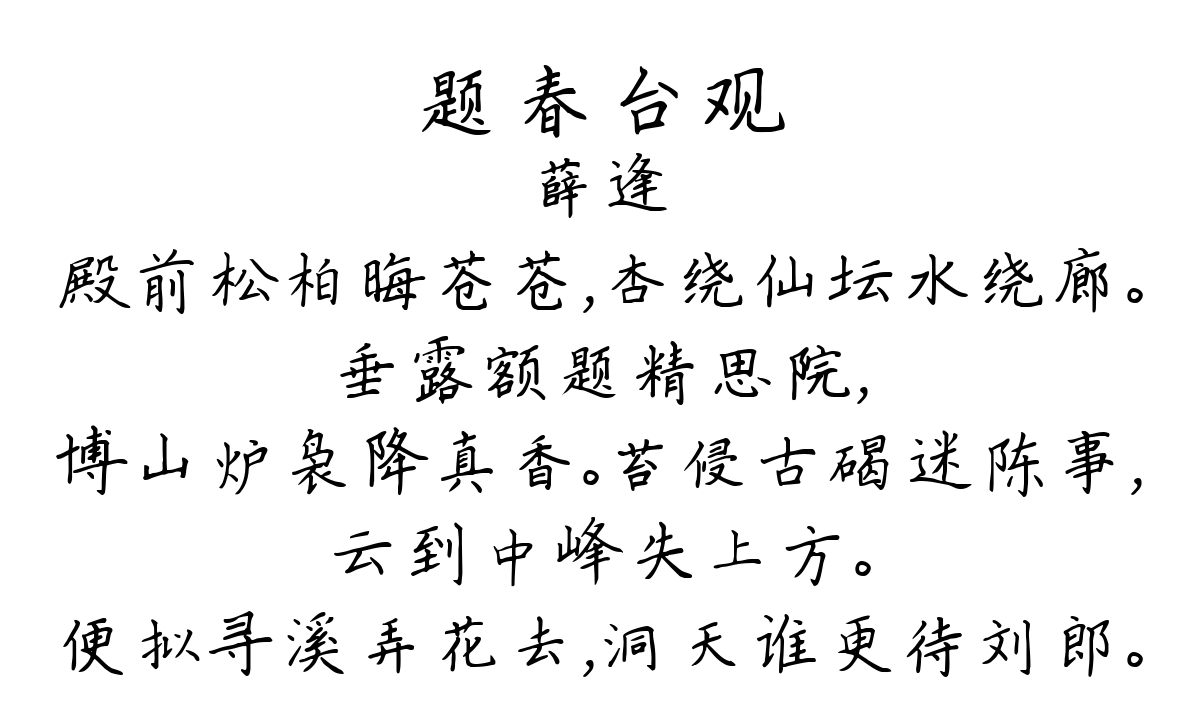 题春台观
薛逢
殿前松柏晦苍苍,杏绕仙坛水绕廊。
垂露额题精思院,
博山炉袅降真香。苔侵古碣迷陈事,
云到中峰失上方。
便拟寻溪弄花去,洞天谁更待刘郎。